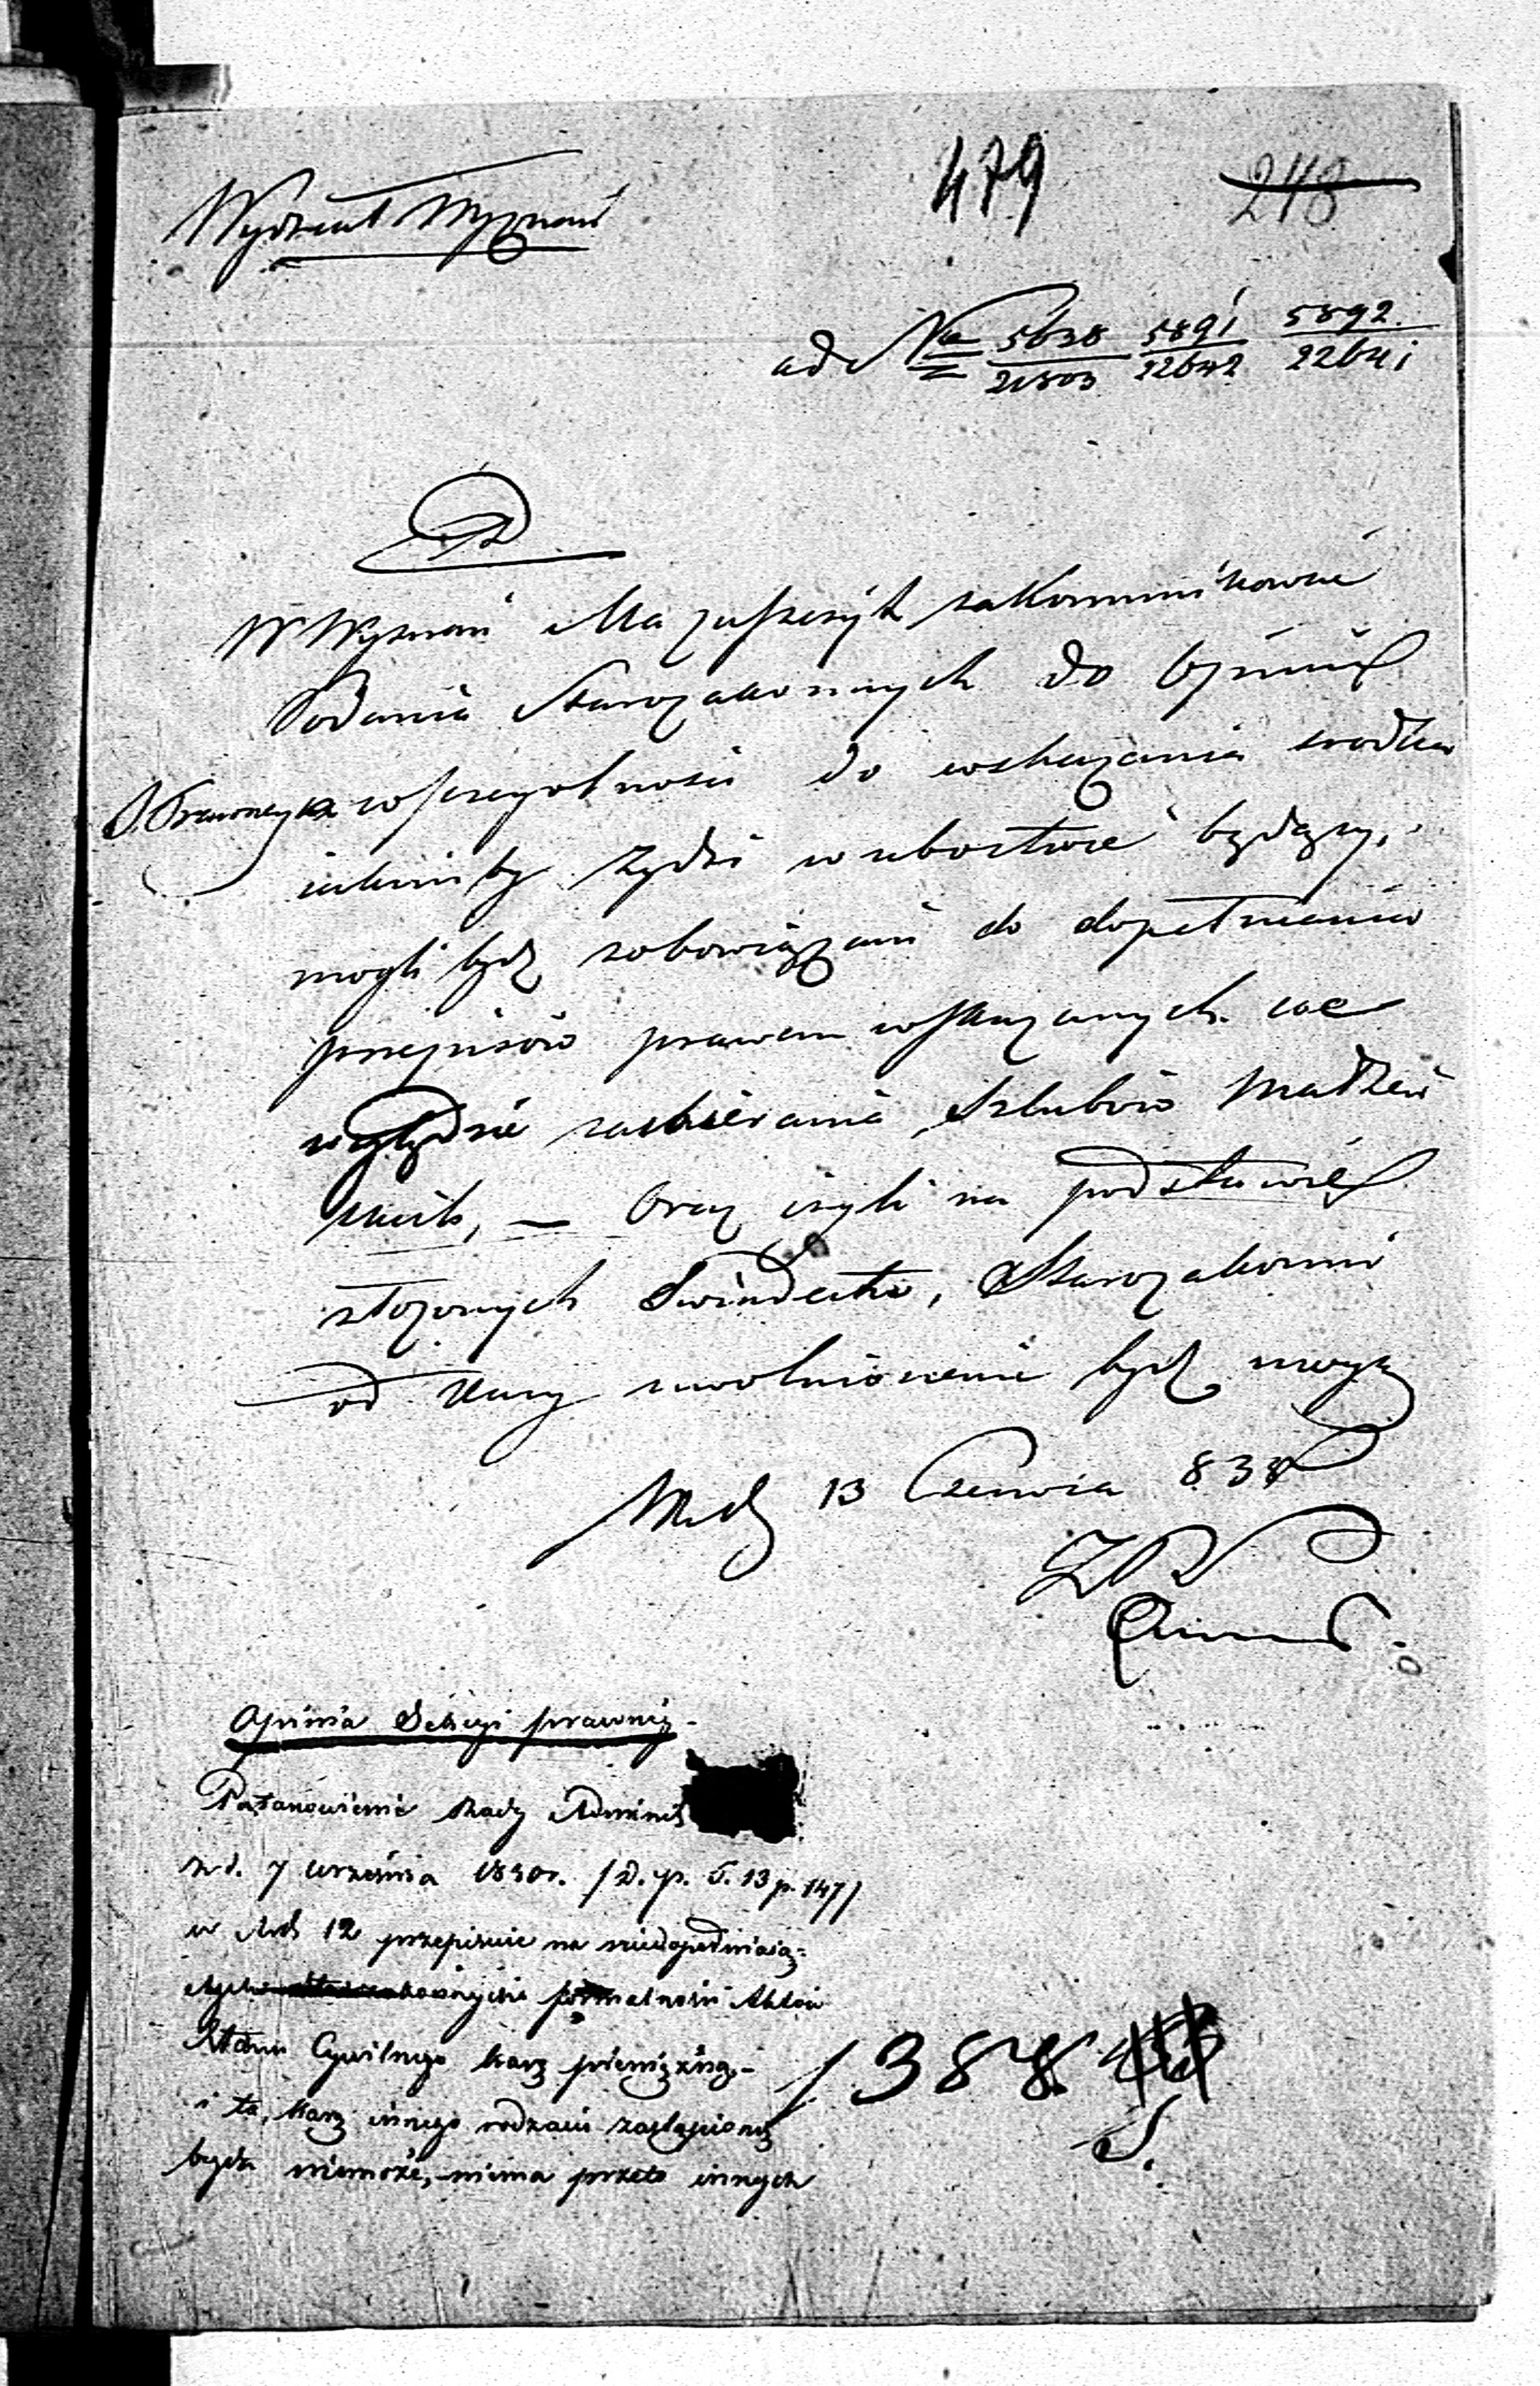 479 248
Wydział Wyznań
ad No 5638 5891 5892
21503 22642 22641
W Wyznań Ma zaszczyt zakommunikować
Podania Starozakonnych do Opinii
S. Prawney a w szczególności do wskazania srodków
iakimi by Żydzi w ubostwie będący,
mogli bydź zobowiązani do dopełnienia
przepisów prawem wskazanych we
względzie zawierania Szlubów Małżeń
skich, — Oraz czyli na podstawie
złożonych Swiadectw, Starozakonni
od Kary uwolnionemi bydź mogą
13 Czerwca 838
Opinia Sekcyi prawnéj
Postanowienie Rady Adminis
z d. 7 września 1830 r. /D. p. T. 13 p. 147/
w Art 12 przepisuie na niedopełniaią=
cych formalności Aktów
Stanu Cywilnego karę pieniężną,
i ta, karą innego rodzaiu zastąpioną
bydź niemoże, niema przeto innych
/388
S.